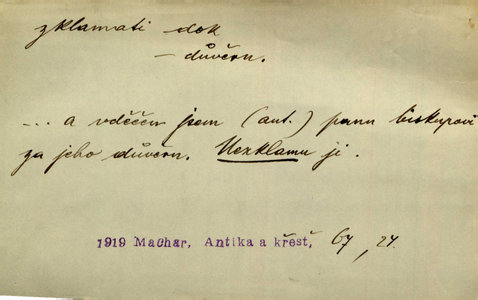 zklamati dok
– důvěru.
... a vděčen jsem (aut.) panu biskupovi
za jeho důvěru. Nezklamu ji.
1919 Machar, Antika a křesť, 67, 24.